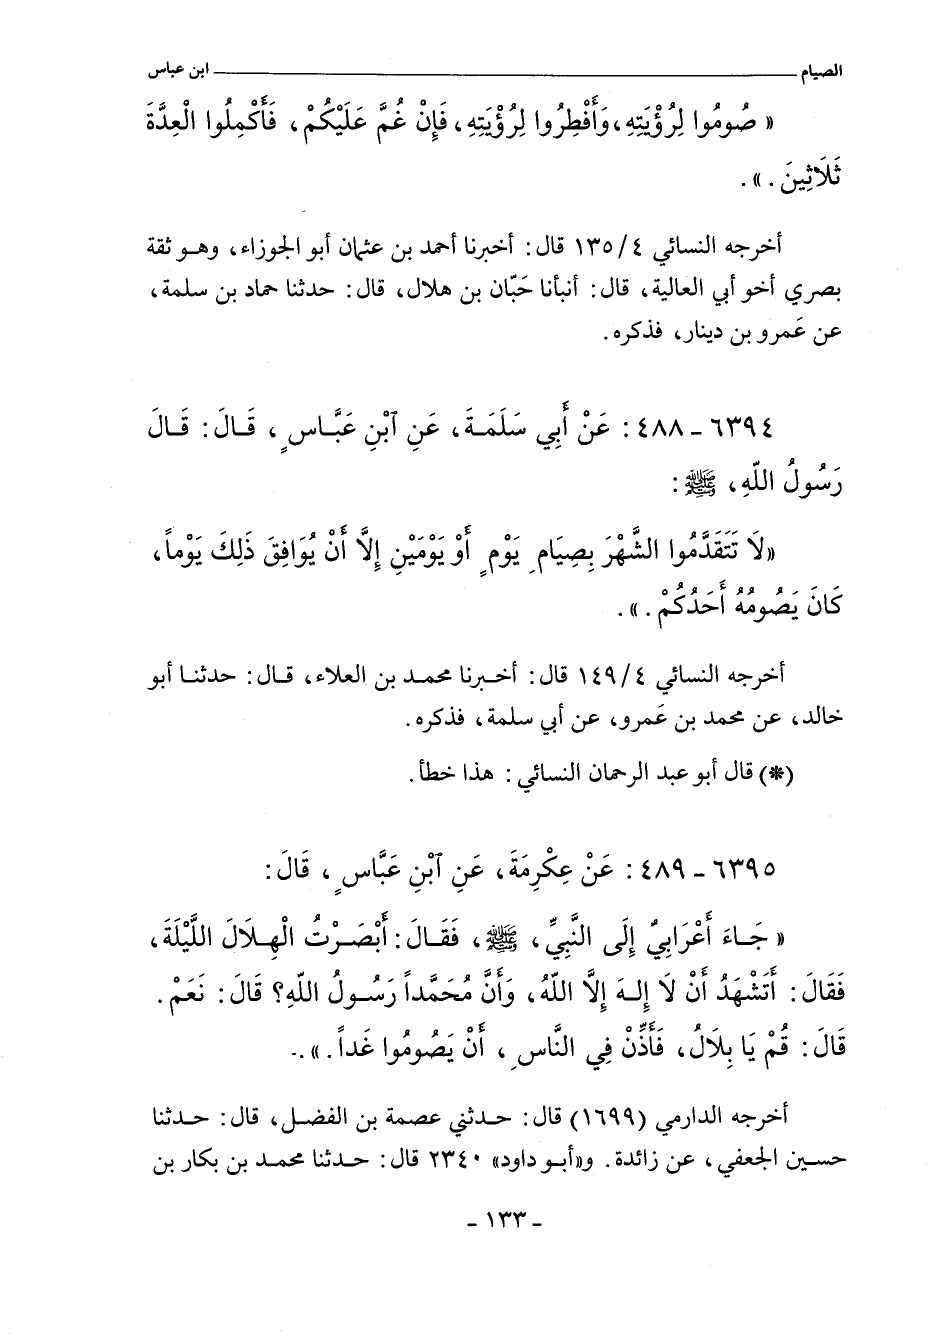 الصيام ــــــــــــــ ابن عباس
« صُومُوا لِرُؤْيَتِهِ، وَأَفْطِرُوا لِرُؤْيَتِهِ، فَإِنْ غُمَّ عَلَيْكُمْ، فَأَكْمِلُوا الْعِدَّةَ
ثَلَاثِينَ . » .
أخرجه النسائي ٤/١٣٥ قال: أخبرنا أحمد بن عثمان أبو الجوزاء، وهو ثقة
بصري أخو أبي العالية، قال: أنبأنا حَبّان بن هلال، قال: حدثنا حماد بن سلمة،
عن عَمرو بن دينار، فذكره.
٦٣٩٤ - ٤٨٨ : عَنْ أَبِي سَلَمَةَ، عَنِ ٱبْنِ عَبَّاسٍ، قَالَ: قَالَ
رَسُولُ اللّهِ، ﷺ :
«لَا تَتَقَدَّمُوا الشَّهْرَ بِصِيَامِ يَوْمٍ أَوْ يَوْمَيْنِ إِلَّا أَنْ يُوَافِقَ ذَلِكَ يَوْماً،
كَانَ يَصُومُهُ أَحَدُكُمْ . » .
أخرجه النسائي ٤/١٤٩ قال: أخبرنا محمد بن العلاء، قال: حدثنا أبو
خالد، عن محمد بن عَمرو، عن أبي سلمة، فذكره.
(*) قال أبو عبد الرحمان النسائي: هذا خطأ.
٦٣٩٥ - ٤٨٩ : عَنْ عِكْرِمَةَ، عَنِ ٱبْنِ عَبَّاسٍ، قَالَ:
« جَاءَ أَعْرَابِيٌّ إِلَى النَّبِيِّ، ﷺ، فَقَالَ: أَبْصَرْتُ الْهِلَالَ اللَّيْلَةَ،
فَقَالَ: أَتَشْهَدُ أَنْ لَا إِلهَ إِلَّا اللّهُ، وَأَنَّ مُحَمَّداً رَسُولُ اللّهِ؟ قَالَ: نَعَمْ.
قَالَ: قُمْ يَا بِلَالُ، فَأَذِّنْ فِي النَّاسِ، أَنْ يَصُومُوا غَداً . » .
أخرجه الدارمي (١٦٩٩) قال: حدثني عصمة بن الفضل، قال: حدثنا
حسين الجعفي، عن زائدة. و«أبو داود» ٢٣٤٠ قال: حدثنا محمد بن بكار بن
- ١٣٣ -